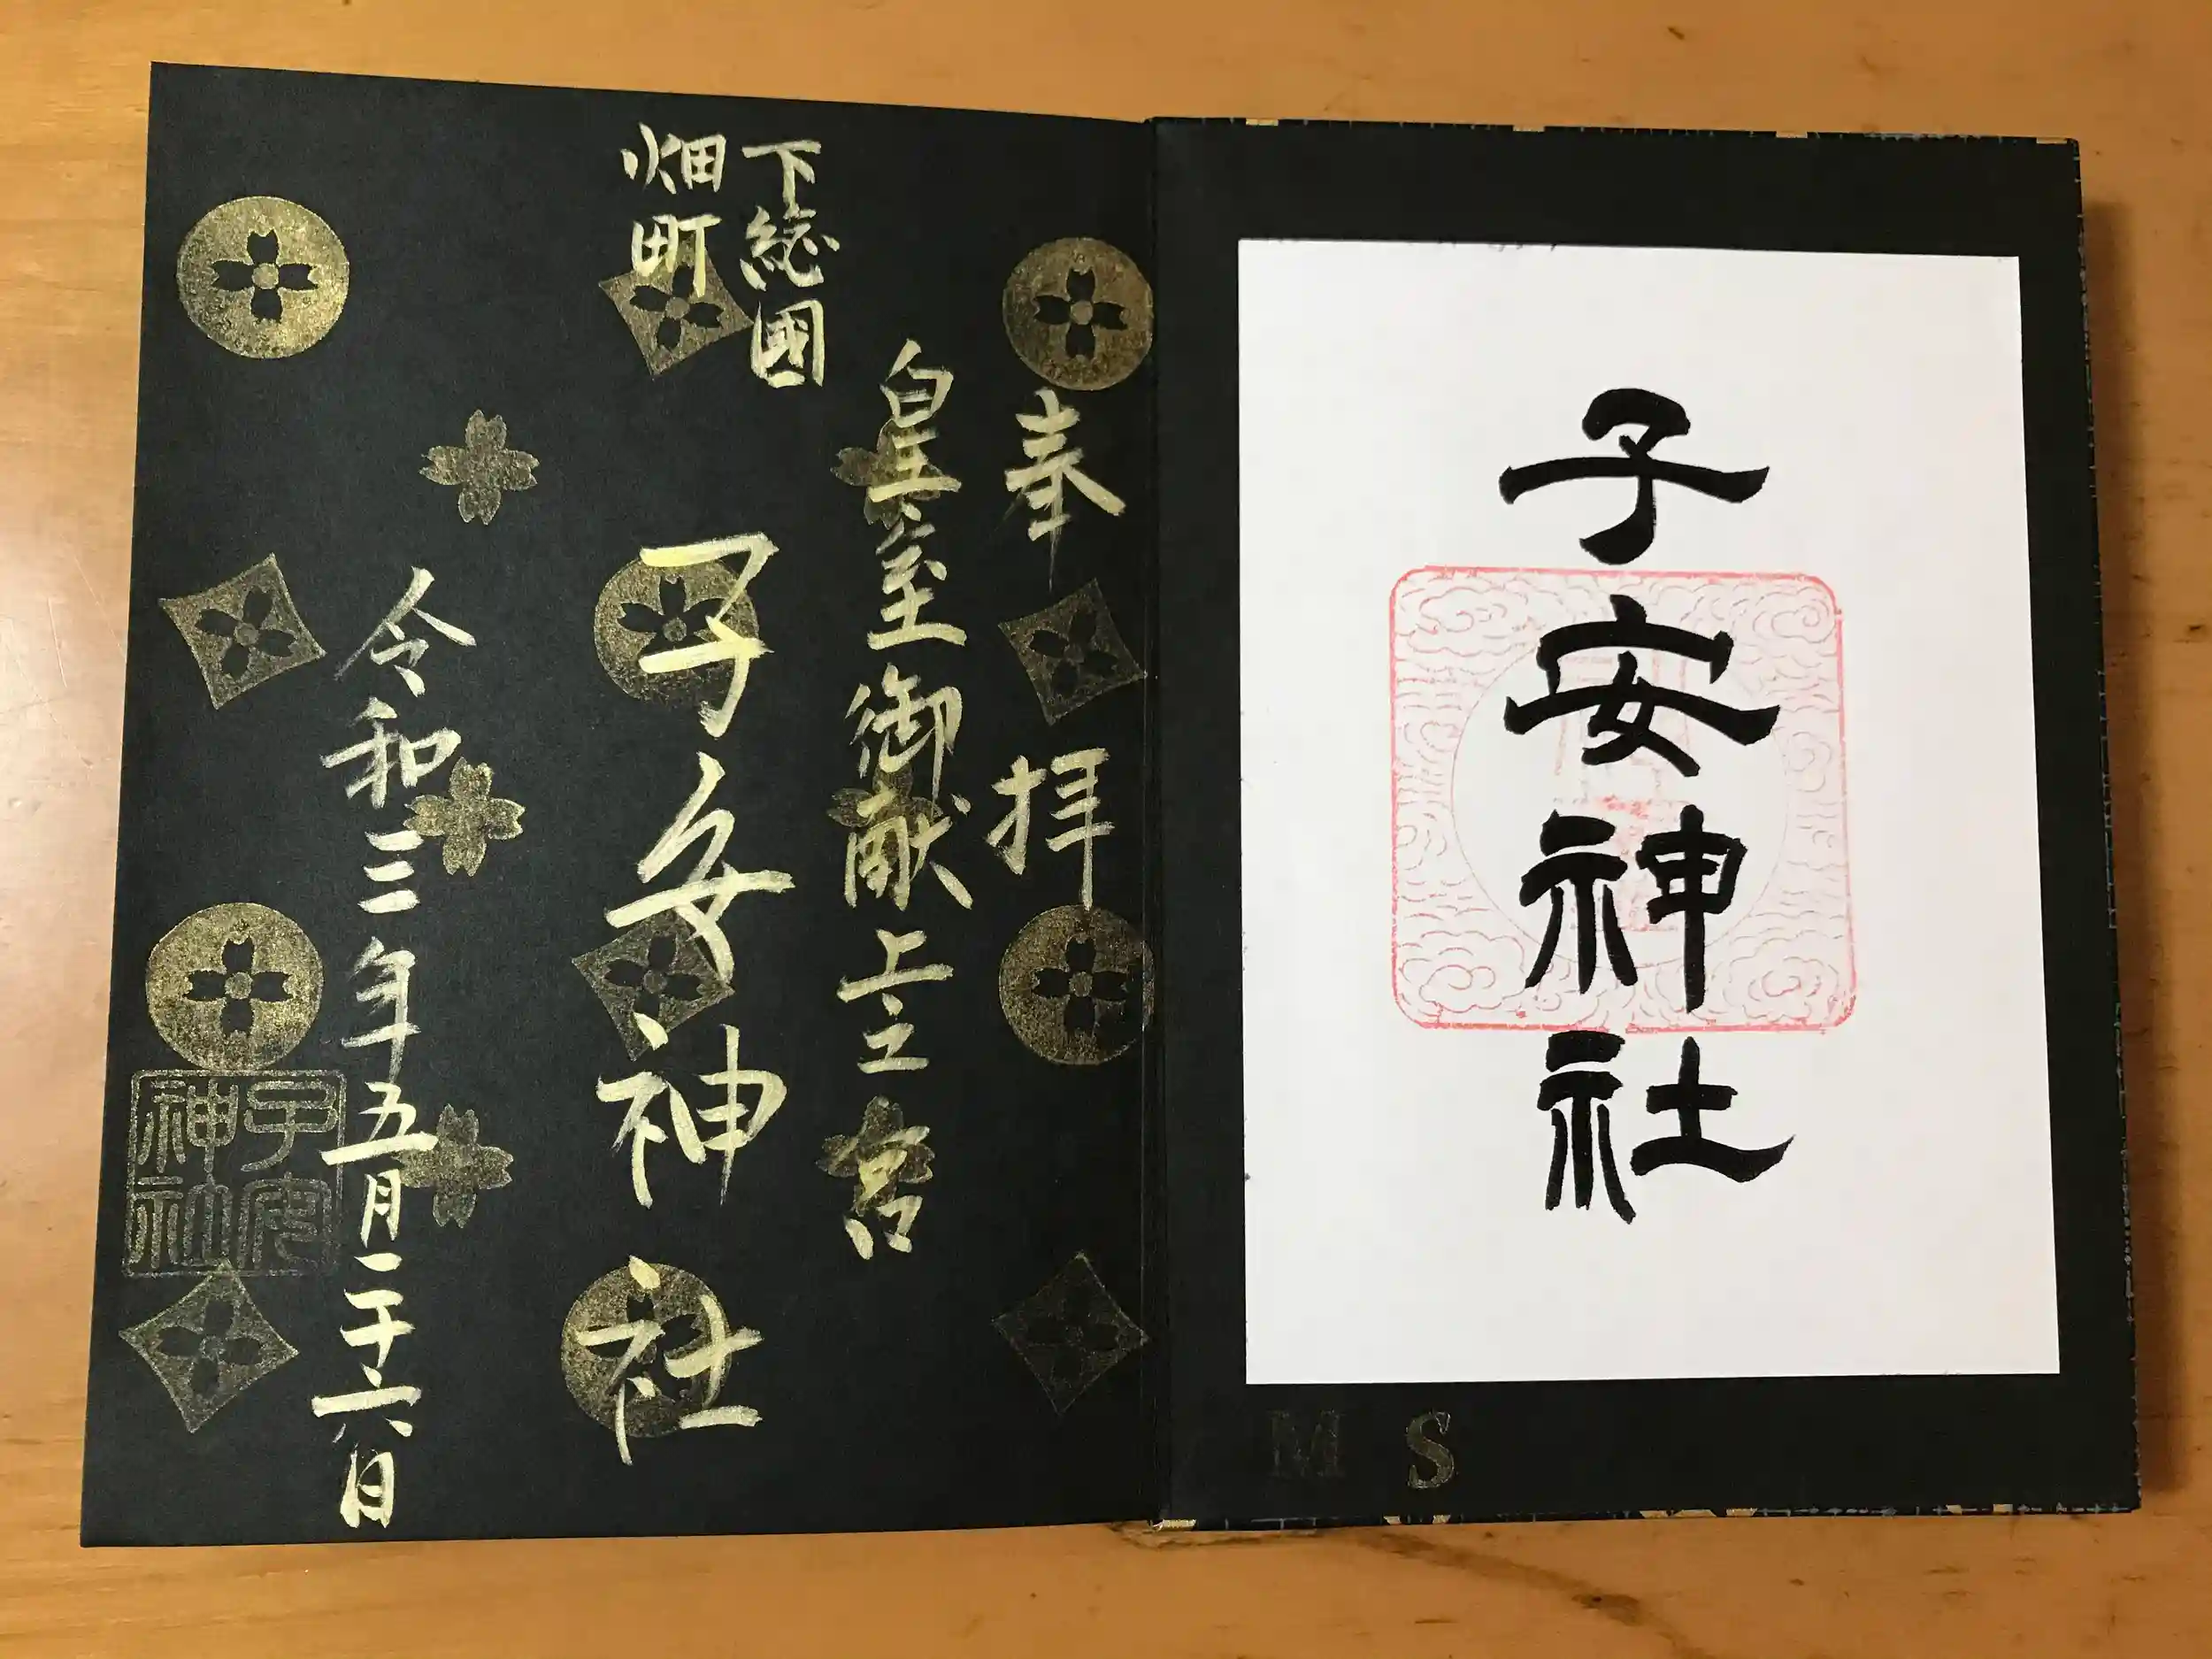 子安神社
M S
奉拝
皇室御献上宮
下総國
畑町
子安神社
令和三年五月二十六日
子安
神社